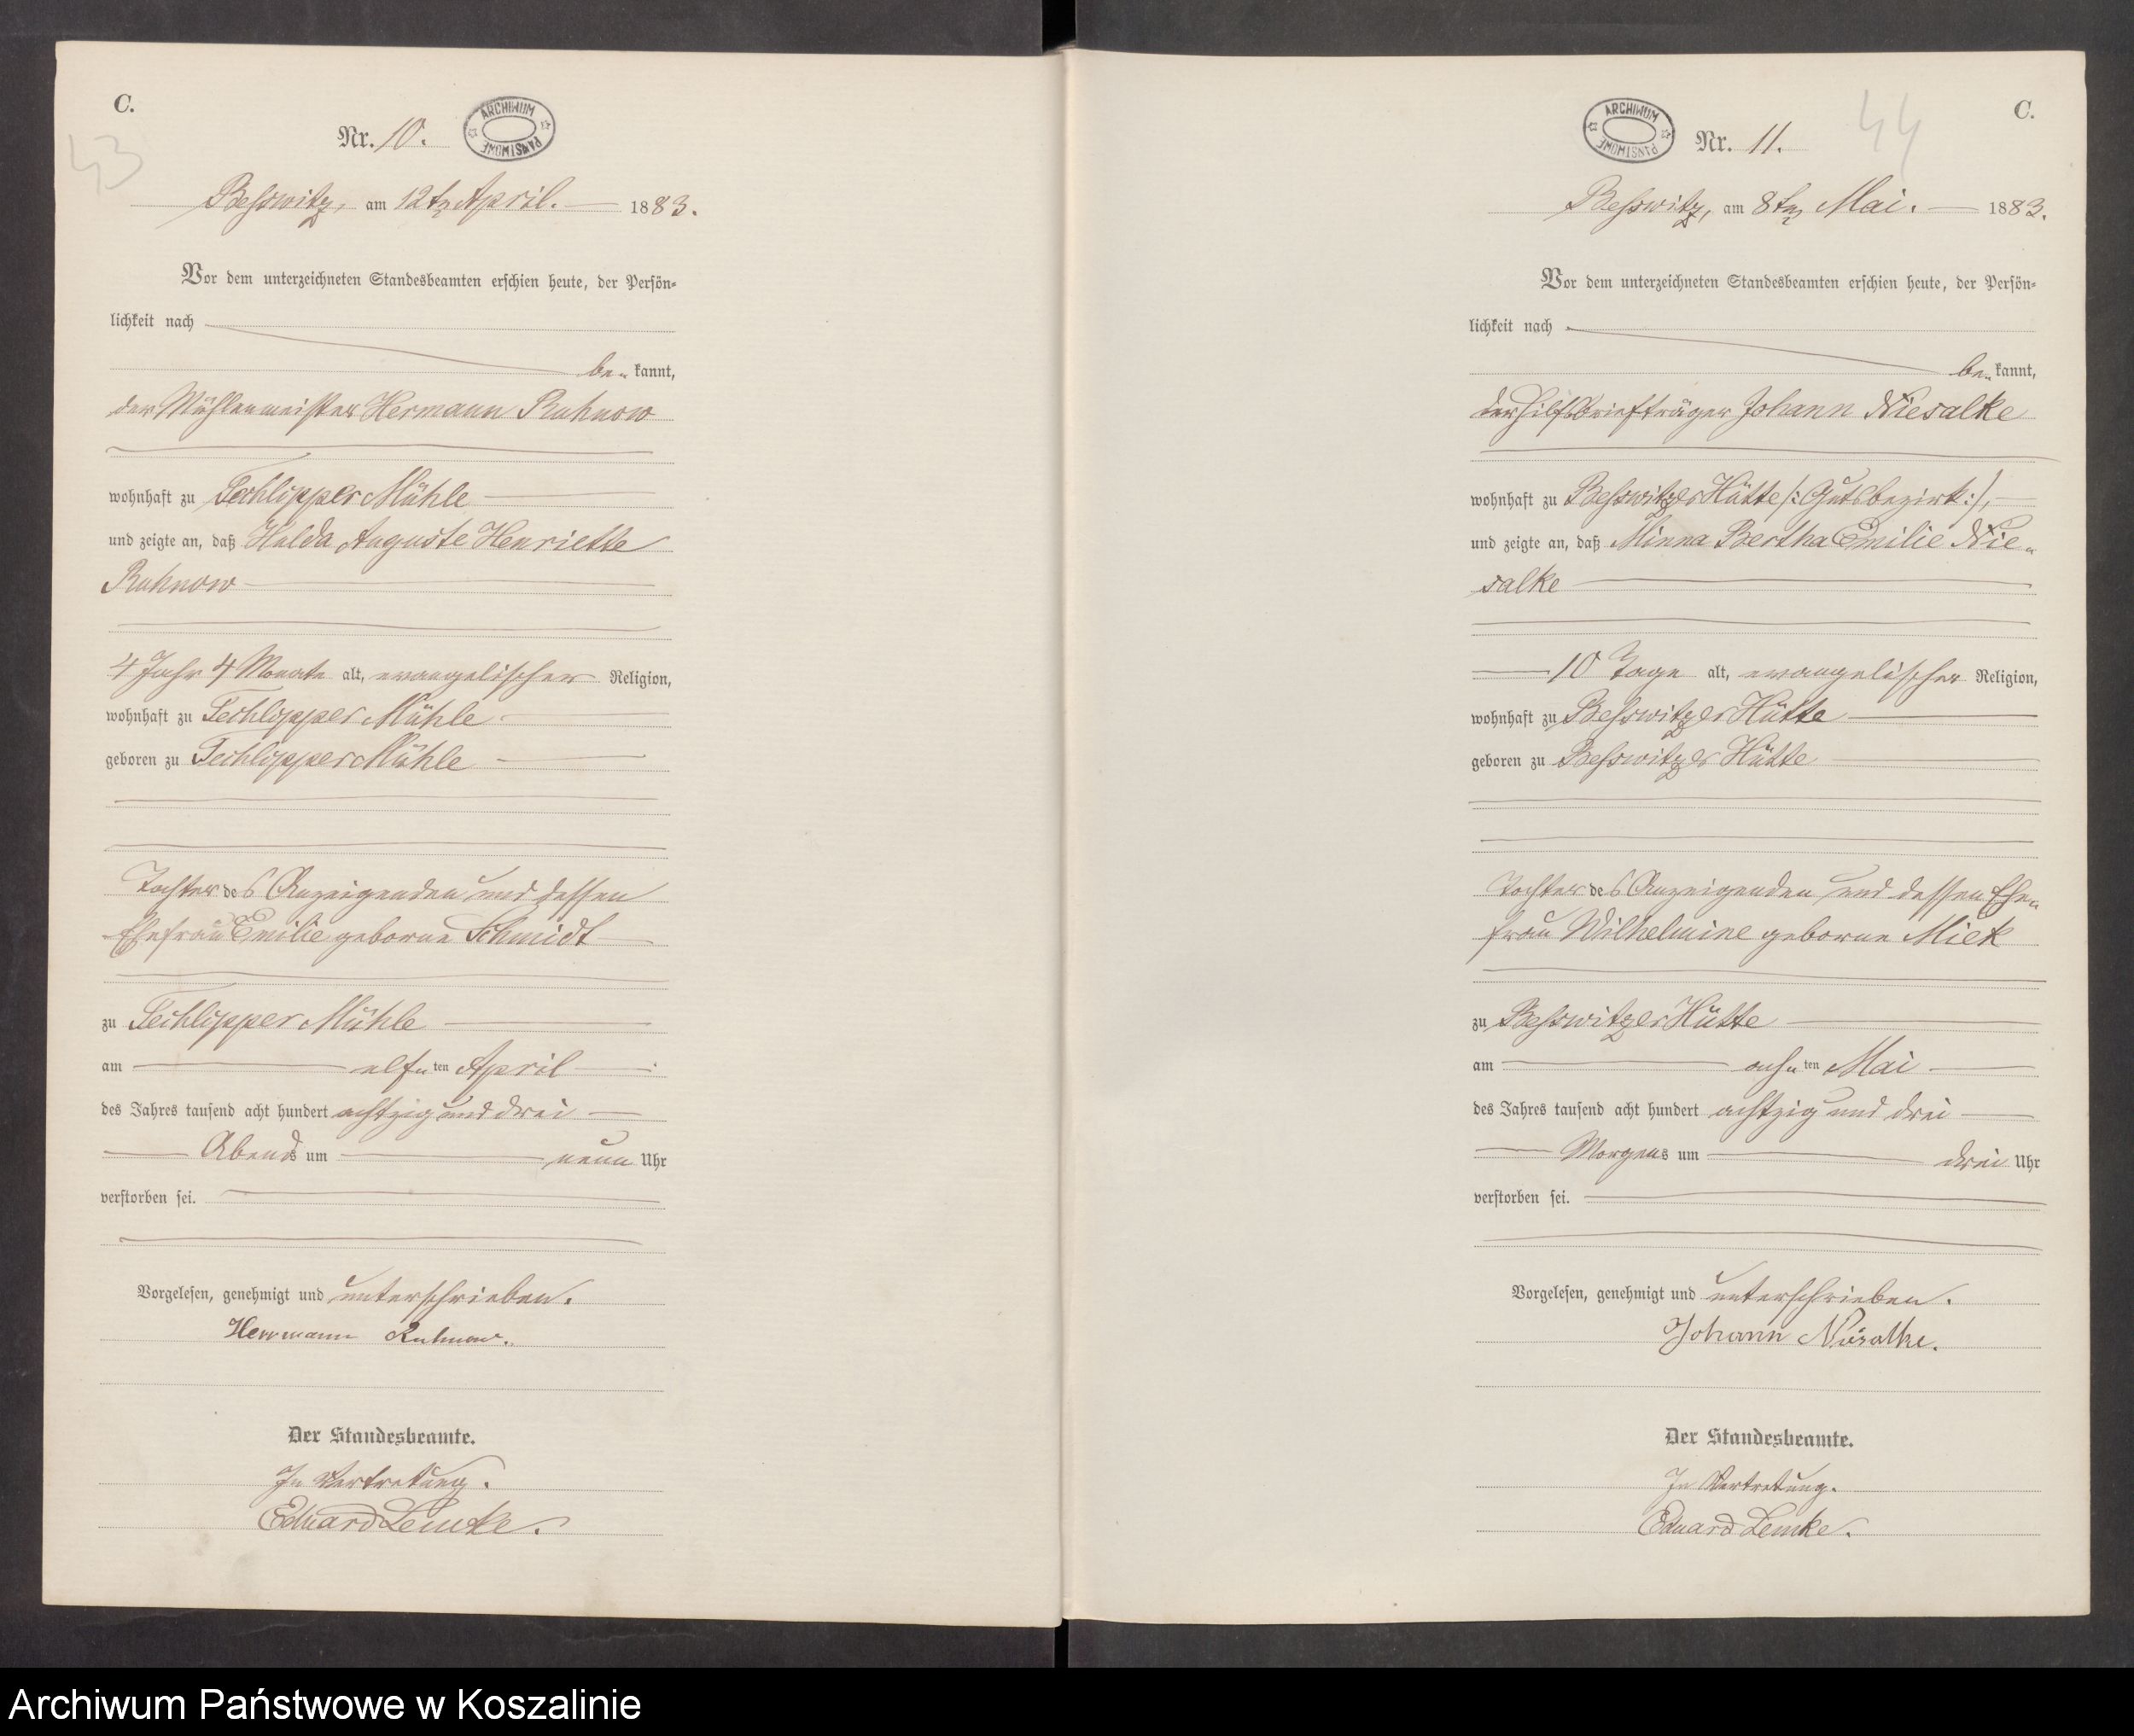 C.
43
Nr. 10.
ARCHIWUM PAŃSTWOWE
Besswitz, am 12ten April. 1883.
Vor dem unterzeichneten Standesbeamten erschien heute, der Persön-
lichkeit nach
be- kannt,
der Mühlenmeister Hermann Ruhnow
wohnhaft zu Techlipper Mühle
und zeigte an, daß Hulda Auguste Henriette
Ruhnow
4 Jahr 4 Monate alt, evangelischer Religion,
wohnhaft zu Techlipper Mühle
geboren zu Techlipper Mühle
Tochter des Anzeigenden und dessen
Ehefrau Emilie geborne Schmidt
zu Techlipper Mühle
am elf- ten April
des Jahres tausend acht hundert achtzig und drei
Abends um neun Uhr
verstorben sei.
Vorgelesen, genehmigt und unterschrieben.
Herrmann Ruhnow.
Der Standesbeamte.
In Vertretung.
Eduard Lemke.
C.
44
ARCHIWUM PAŃSTWOWE
Nr. 11.
Besswitz, am 8ten Mai. 1883.
Vor dem unterzeichneten Standesbeamten erschien heute, der Persön-
lichkeit nach
be- kannt,
der Hilfsbriefträger Johann Niesalke
wohnhaft zu Besswitzer Hütte /: Gutsbezirk :/,
und zeigte an, daß Minna Bertha Emilie Nie-
salke
10 Tage alt, evangelischer Religion,
wohnhaft zu Besswitzer Hütte
geboren zu Besswitzer Hütte
Tochter des Anzeigenden und dessen Ehe-
frau Wilhelmine geborne Miek
zu Besswitzer Hütte
am ach- ten Mai
des Jahres tausend acht hundert achtzig und drei
Morgens um drei Uhr
verstorben sei.
Vorgelesen, genehmigt und unterschrieben.
Johann Niesalke.
Der Standesbeamte.
In Vertretung.
Eduard Lemke.
Archiwum Państwowe w Koszalinie